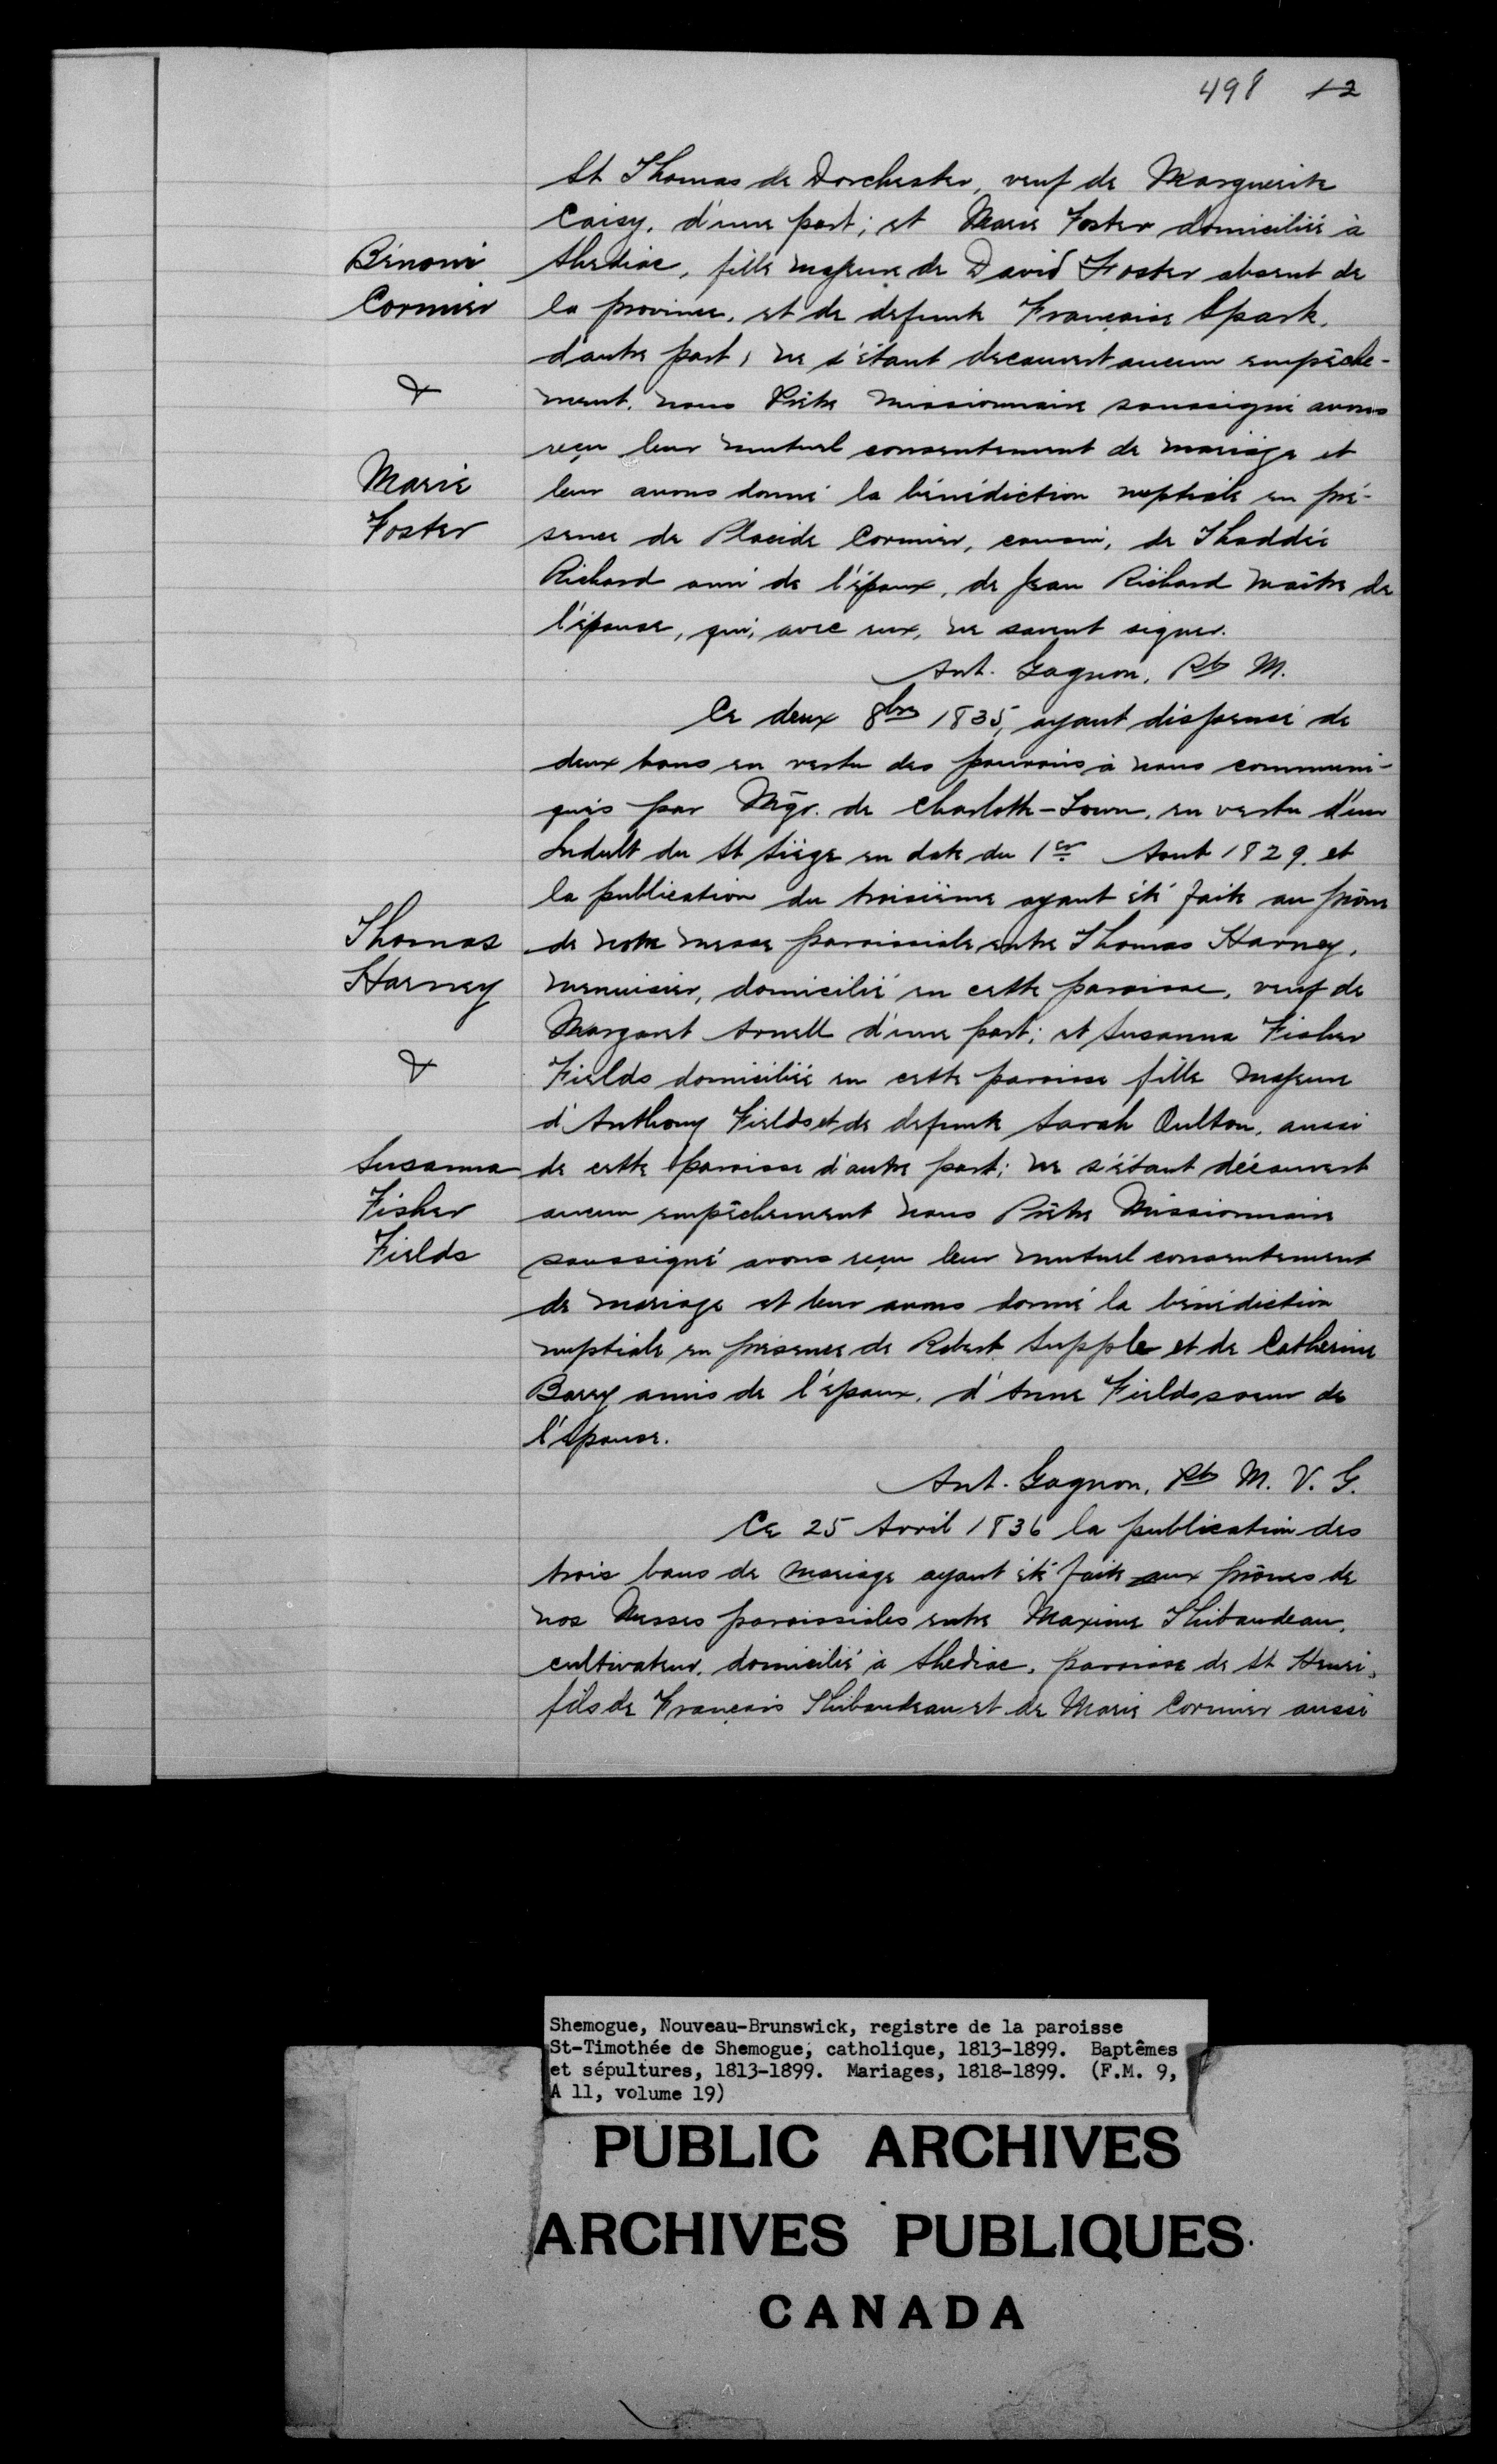 498 12
St Thomas de Dorchester, veuf de Marguerite
Caisy, d'une part; et Marie Foster domiciliée à
Bénoni
Shediac, fille majeure de David Foster absent de
Cormier
la province, et de defunte Françoise Spark,
d'autre part, ne s'étant decouvert aucun empêche-
&
ment, nous Prêtre Missionnaire soussigné avons
reçu leur mutuel consentement de mariage et
Marie
leur avons donné la bénédiction nuptiale en pré-
Foster
sence de Placide Cormier, cousin, de Thaddée
Richard ami de l'époux, de Jean Richard maître de
l'épouse, qui, avec eux, ne savent signer.
Ant. Gagnon, Ptre M.
Ce deux 8bre 1835, ayant dispensé de
deux bans en vertu des pouvoirs à nous communi-
qués par Mgr. de Charlotte-Town, en vertu d'un
Indult du St Siège en date du 1er Aout 1829. et
la publication du troisième ayant été faite au prône
Thomas
de notre messe paroissiale entre Thomas Harney,
Harney
menuisier, domicilié en cette paroisse, veuf de
Margaret Arnell d'une part; et Susanna Fisher
&
Fields domiciliée en cette paroisse fille majeure
d'Anthony Fields et de defunte Sarah Oulton, aussi
Susanna
de cette paroisse d'autre part; ne s'étant découvert
Fisher
aucun empêchement nous Prêtre Missionnaire
Fields
soussigné avons reçu leur mutuel consentement
de mariage et leur avons donné la bénédiction
nuptiale en présence de Robert Supple et de Catherine
Barry amis de l'époux, d'Anne Fields soeur de
l'épouse.
Ant. Gagnon, Ptre M. V. G.
Ce 25 Avril 1836 la publication des
trois bans de mariage ayant été faite aux prônes de
nos Messes paroissiales entre Maxime Thibaudeau,
cultivateur, domicilié à Shediac, paroisse de St Henri,
fils de François Thibaudeau et de Marie Cormier aussi
Shemogue, Nouveau-Brunswick, registre de la paroisse
St-Timothée de Shemogue, catholique, 1813-1899. Baptêmes
et sépultures, 1813-1899. Mariages, 1818-1899. (F.M. 9,
A 11, volume 19)
PUBLIC ARCHIVES
ARCHIVES PUBLIQUES
CANADA